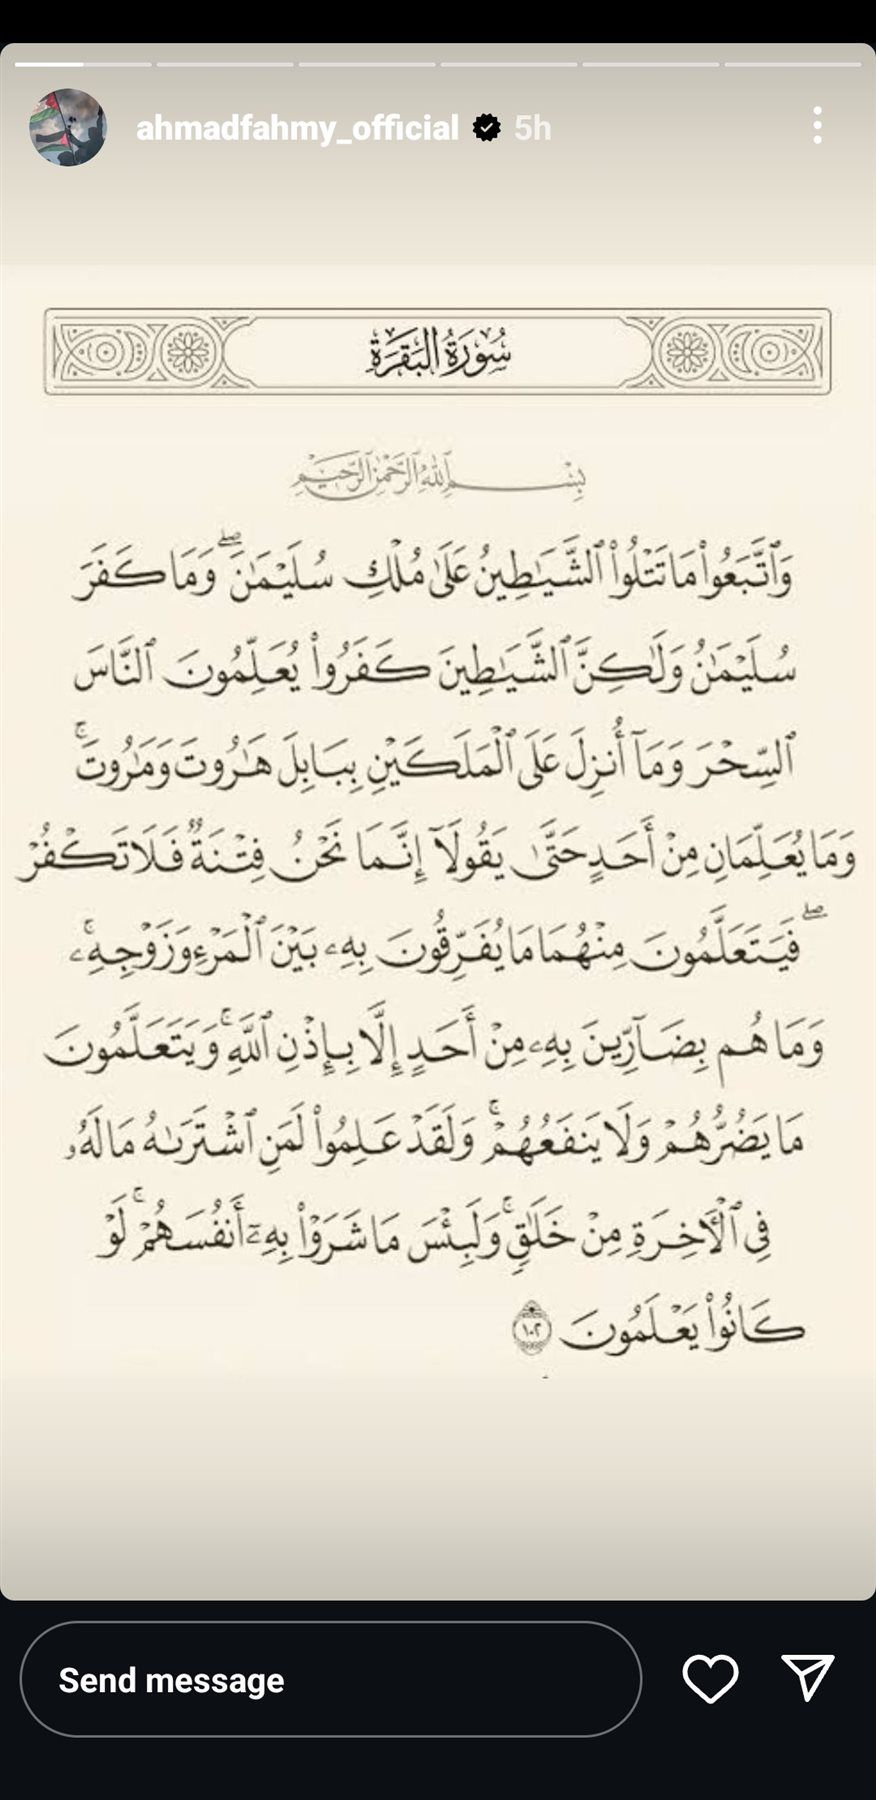 ahmadfahmy_official 5h
سُورَةُ البَقَرَةِ
بِسْمِ ٱللَّهِ ٱلرَّحْمَٰنِ ٱلرَّحِيمِ
وَٱتَّبَعُوا۟ مَا تَتْلُوا۟ ٱلشَّيَٰطِينُ عَلَىٰ مُلْكِ سُلَيْمَٰنَ ۖ وَمَا كَفَرَ
سُلَيْمَٰنُ وَلَٰكِنَّ ٱلشَّيَٰطِينَ كَفَرُوا۟ يُعَلِّمُونَ ٱلنَّاسَ
ٱلسِّحْرَ وَمَآ أُنزِلَ عَلَى ٱلْمَلَكَيْنِ بِبَابِلَ هَٰرُوتَ وَمَٰرُوتَ ۚ
وَمَا يُعَلِّمَانِ مِنْ أَحَدٍ حَتَّىٰ يَقُولَآ إِنَّمَا نَحْنُ فِتْنَةٌ فَلَا تَكْفُرْ
ۖ فَيَتَعَلَّمُونَ مِنْهُمَا مَا يُفَرِّقُونَ بِهِۦ بَيْنَ ٱلْمَرْءِ وَزَوْجِهِۦ ۚ
وَمَا هُم بِضَآرِّينَ بِهِۦ مِنْ أَحَدٍ إِلَّا بِإِذْنِ ٱللَّهِ ۚ وَيَتَعَلَّمُونَ
مَا يَضُرُّهُمْ وَلَا يَنفَعُهُمْ ۚ وَلَقَدْ عَلِمُوا۟ لَمَنِ ٱشْتَرَىٰهُ مَا لَهُۥ
فِى ٱلْـَٔاخِرَةِ مِنْ خَلَٰقٍ ۚ وَلَبِئْسَ مَا شَرَوْا۟ بِهِۦٓ أَنفُسَهُمْ ۚ لَوْ
كَانُوا۟ يَعْلَمُونَ ١٠٢
Send message